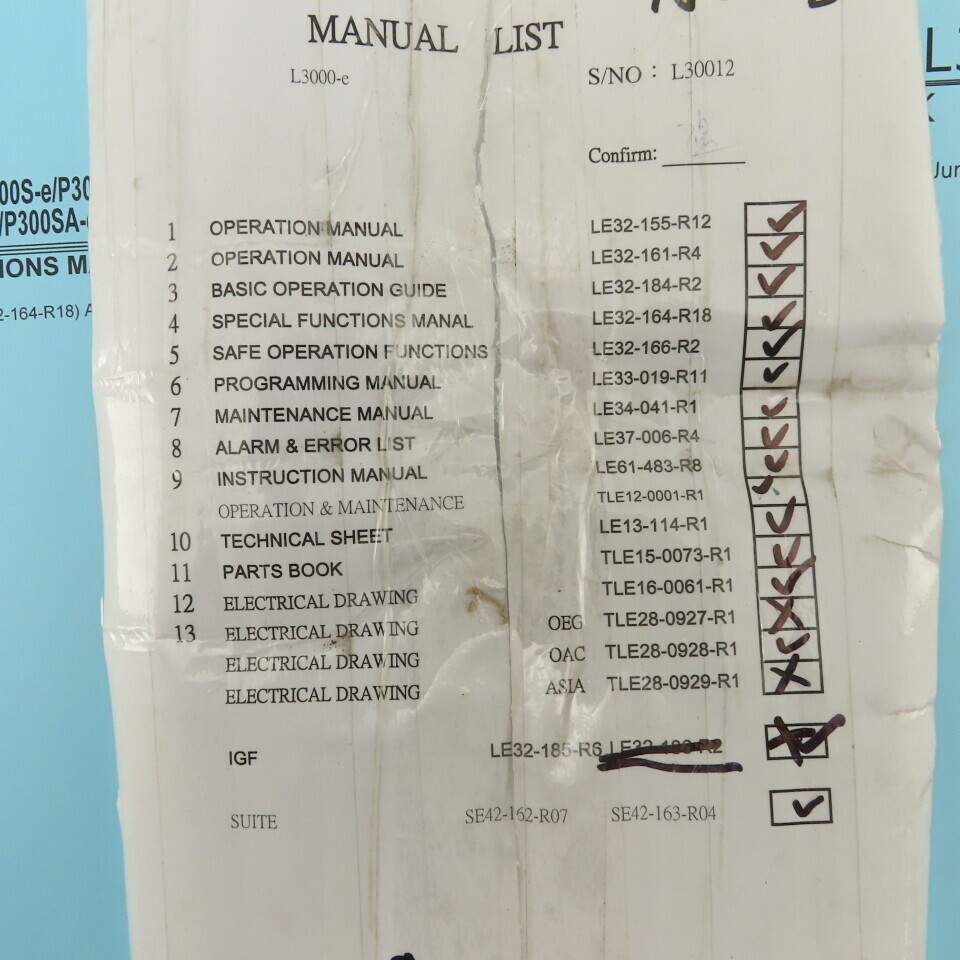 MANUAL LIST
L3000-e
S/NO : L30012
Confirm:
1 OPERATION MANUAL LE32-155-R12
2 OPERATION MANUAL LE32-161-R4
3 BASIC OPERATION GUIDE LE32-184-R2
4 SPECIAL FUNCTIONS MANAL LE32-164-R18
5 SAFE OPERATION FUNCTIONS LE32-166-R2
6 PROGRAMMING MANUAL LE33-019-R11
7 MAINTENANCE MANUAL LE34-041-R1
8 ALARM & ERROR LIST LE37-006-R4
9 INSTRUCTION MANUAL LE61-483-R8
OPERATION & MAINTENANCE TLE12-0001-R1
10 TECHNICAL SHEET LE13-114-R1
11 PARTS BOOK TLE15-0073-R1
12 ELECTRICAL DRAWING TLE16-0061-R1
13 ELECTRICAL DRAWING OEG TLE28-0927-R1
ELECTRICAL DRAWING OAC TLE28-0928-R1
ELECTRICAL DRAWING ASIA TLE28-0929-R1
IGF LE32-185-R6
SUITE SE42-162-R07 SE42-163-R04
00S-e/P30
/P300SA-
IONS M
2-164-R18) A
Jun